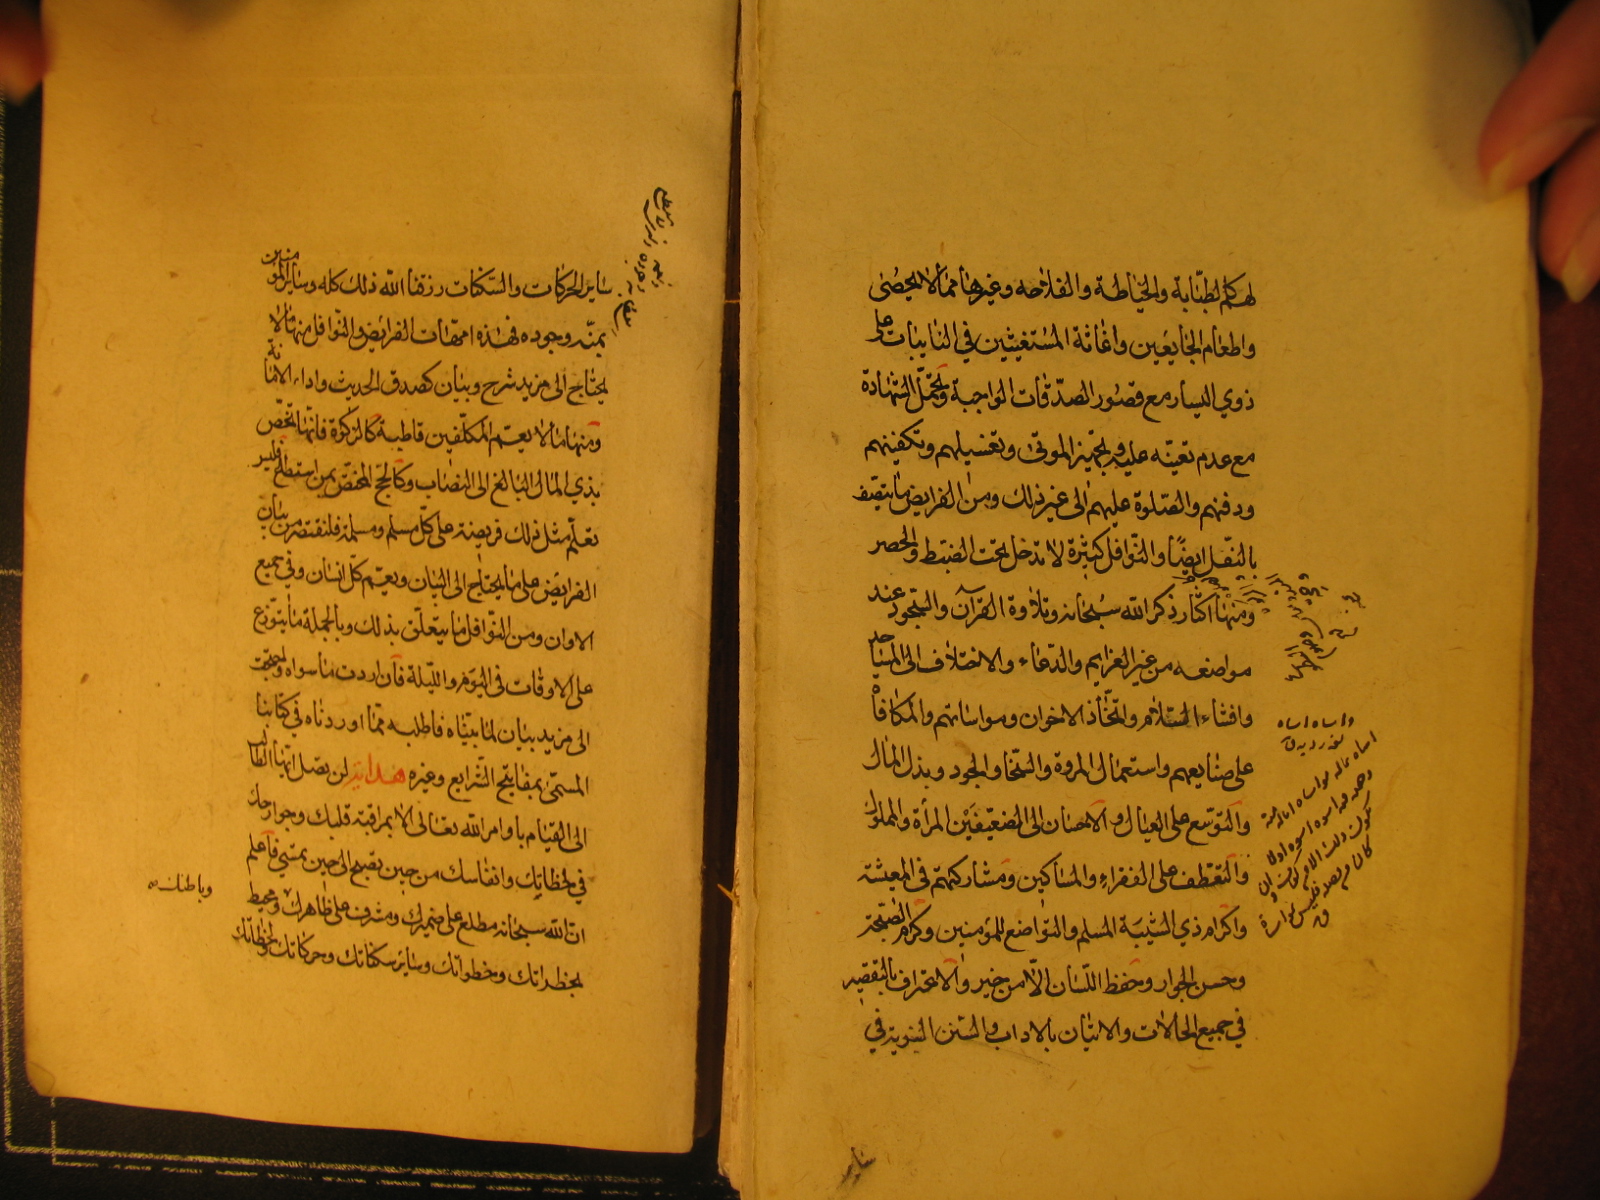 لهم كالطبابة والخياطة والفلاحه وغيرها مما لا يحصى
واطعام الجايعين واغاثة المستغيثين في النايبات على
ذوي اليسار مع قصور الصدقات الواجبة وتحمل الشهادة
مع عدم تعينه عليه وتجهيز الموتى وتغسيلهم وتكفينهم
ودفنهم والصلوة عليهم الى غير ذلك ومن الفرايض ما يتصف
بالنفل ايضا والنوافل كثيرة لا تدخل تحت الضبط والحصر
ومنها اكثار ذكر الله سبحانه وتلاوة القرآن والسجود عند
مواضعه من غير العزايم والدعاء والاختلاف الى المساجد
وافشاء السلام واتخاذ الاخوان ومواساتهم والمكافاة
على صنايعهم واستعمال المروة والسخا والجود وبذل المال
والتوسع على العيال والاحسان الى الضعيفين المرأة والمملوك
والتعطف على الفقراء والمساكين ومشاركتهم في المعيشة
واكرام ذي الشيبة المسلم والتواضع للمؤمنين وكرم الصحبة
وحسن الجوار وحفظ اللسان الا من خير والاعتراف بالتقصير
في جميع الحالات والاتيان بالاداب والسنن النبوية في
ساير
ساير الحركات والسكنات رزقنا الله ذلك كله وساير المؤمنين
بمنه وجوده فهذه امهات الفرائض والنوافل منها ما لا
يحتاج الى مزيد شرح وبيان كصدق الحديث واداء الامانة
ومنها ما لا يعم المكلفين قاطبة كالزكوة فانها تختص
بذي المال البالغ الى النصاب وكالحج المختص بمن استطاع فليس
تعلم مثل ذلك فريضة على كل مسلم ومسلمة فلنقتصر من بيان
الفرايض على ما يحتاج الى البيان ويعم كل انسان وفي جميع
الاوان ومن النوافل ما يتعلق بذلك وبالجملة ما يتوزع
على الاوقات في اليوم والليلة فان اردت ما سواه واحتجت
الى مزيد بيان لما بيناه فاطلبه مما اوردناه في كتابنا
المسمى بمفاتيح الشرايع وغيره هداية لن تصل ايها الطالب
الى القيام باوامر الله تعالى الا بمراقبة قلبك وجوارحك
في لحظاتك وانفاسك من حين تصبح الى حين تمسي فاعلم
ان الله سبحانه مطلع على ضميرك ومشرف على ظاهرك ومحيط
وباطنك
بخطراتك وخطواتك وساير سكناتك وحركاتك لحظاتك